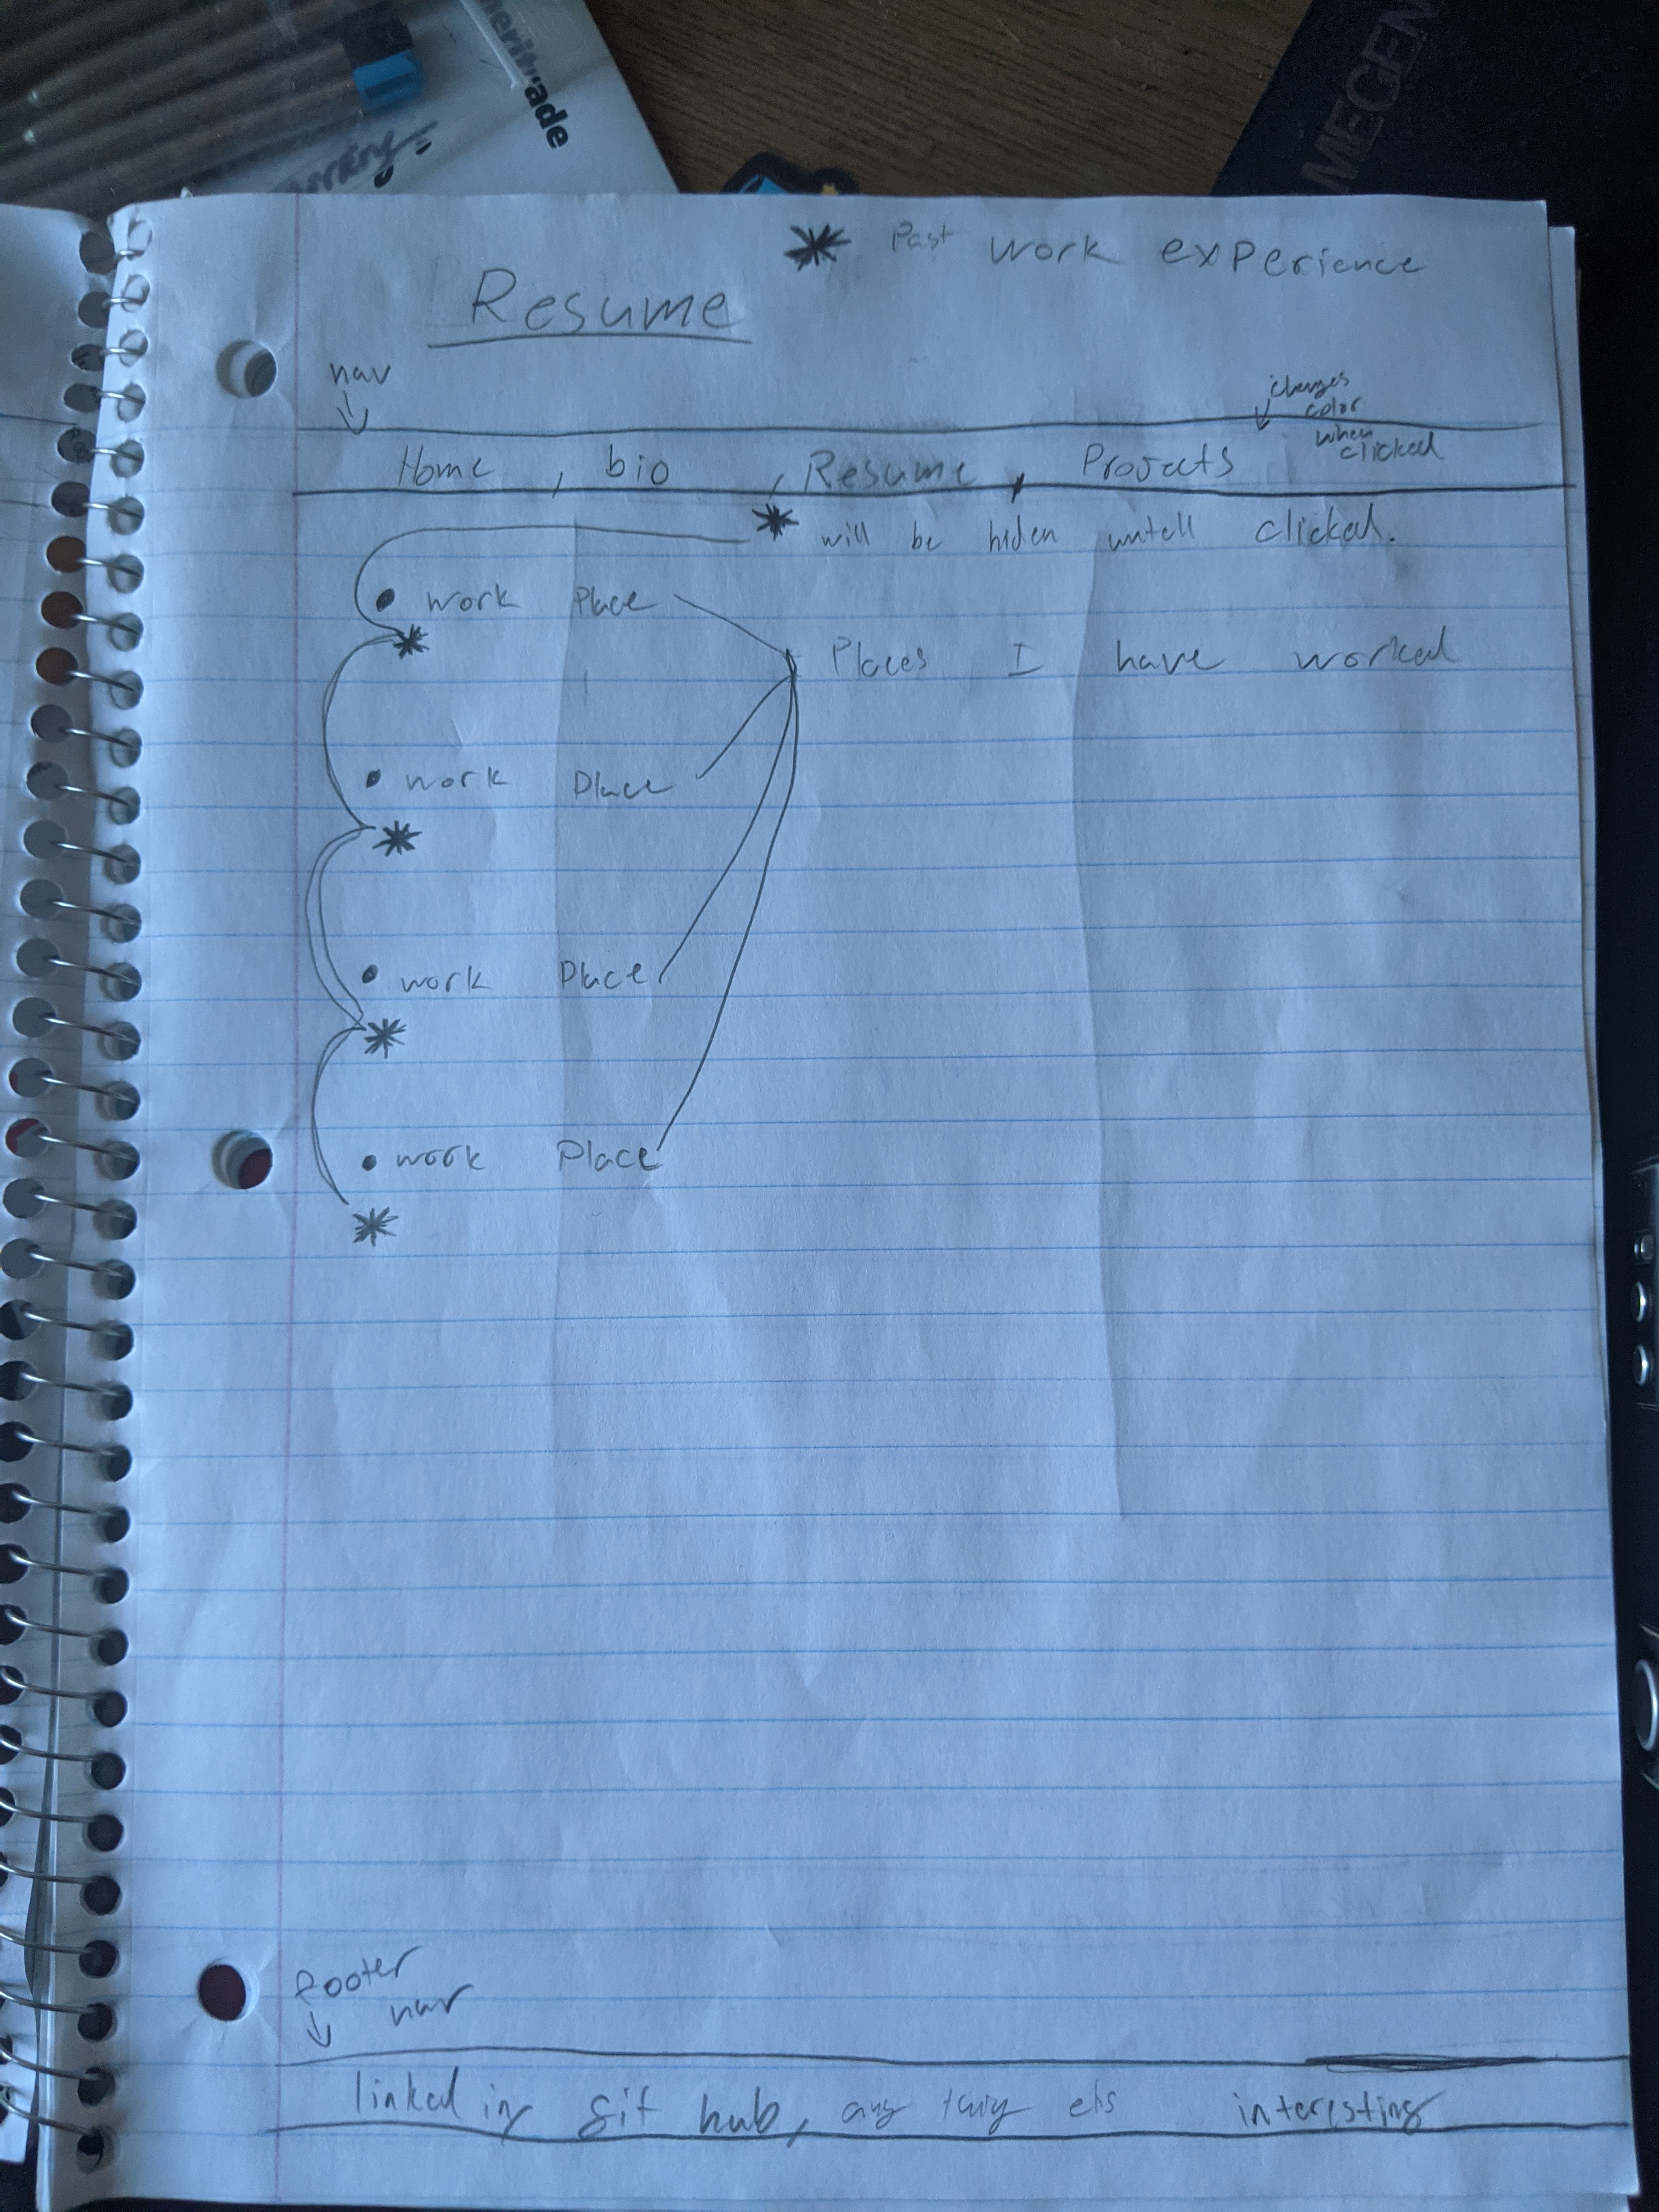 meritrade
MEGEN
* Past work experience
Resume
nav
changes
color
when
clicked
Home , bio , Resume , Projects
* will be hiden untell clicked.
• work Place
*
Places I have worked
• work Place
*
• work Place
*
• work Place
*
footer
nav
linked in, git hub, any els interesting